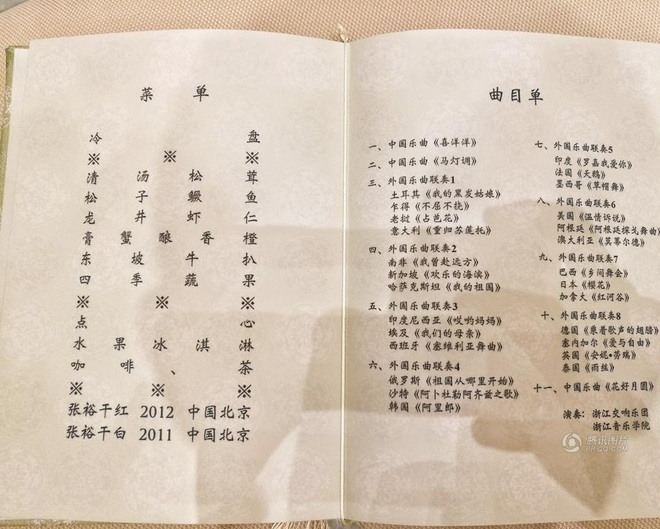 菜 单
冷 盘
※ ※ ※
清 汤 松 茸
松 子 鳜 鱼
龙 井 虾 仁
膏 蟹 酿 香 橙
东 坡 牛 扒
四 季 蔬 果
※ ※
点 心
水 果 冰 淇 淋
咖 啡 、 茶
※ ※ ※
张裕干红 2012 中国北京
张裕干白 2011 中国北京
曲目单
一、中国乐曲《喜洋洋》
二、中国乐曲《马灯调》
三、外国乐曲联奏1
土耳其《我的黑发姑娘》
乍得《不屈不挠》
老挝《占芭花》
意大利《重归苏莲托》
四、外国乐曲联奏2
南非《我曾赴远方》
新加坡《欢乐的海滨》
哈萨克斯坦《我的祖国》
五、外国乐曲联奏3
印度尼西亚《哎哟妈妈》
埃及《我们的母亲》
西班牙《塞维利亚舞曲》
六、外国乐曲联奏4
俄罗斯《祖国从哪里开始》
沙特《阿卜杜勒阿齐兹之歌》
韩国《阿里郎》
七、外国乐曲联奏5
印度《罗嘉我爱你》
法国《天鹅》
墨西哥《草帽舞》
八、外国乐曲联奏6
美国《温情诉说》
阿根廷《阿根廷探戈舞曲》
澳大利亚《莫蒂尔德》
九、外国乐曲联奏7
巴西《乡间舞会》
日本《樱花》
加拿大《红河谷》
十、外国乐曲联奏8
德国《乘着歌声的翅膀》
塞内加尔《爱与自由》
英国《安妮·劳瑞》
泰国《雨丝》
十一、中国乐曲《花好月圆》
演奏：浙江交响乐团
浙江音乐学院
腾讯图片
PP.QQ.COM